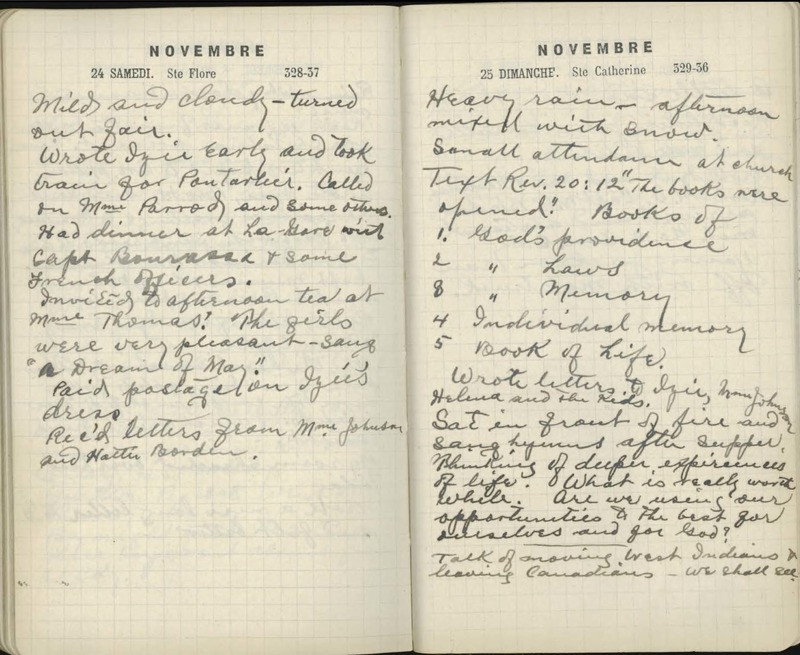 NOVEMBRE
24 SAMEDI. Ste Flore 328-37
Mild and cloudy - turned
out fair.
Wrote Izie early and took
train for Pontarlier. Called
on Mme Parrod and some others.
Had dinner at La-Gare with
Capt Bourassa & some
French Officers.
Invited to afternoon tea at
Mme Thomas! The girls
were very pleasant - sang
"A Dream of May."
Paid postage on Izie's
dress
Rec'd letters from Mme Johnson
and Hattie Borden.
NOVEMBRE
25 DIMANCHE. Ste Catherine 329-36
Heavy rain - afternoon
mixed with snow.
Small attendance at church
Text Rev. 20:12 "The books were
opened". Books of
1. God's providence
2 " Laws
3 " Memory
4 Individual memory
5 Book of Life.
Wrote letters to Izie, Mme Johnson
Helena and the Kids.
Sat in front of fire and
sang hymns after supper.
Thinking of deeper expirences
of life. What is really worth
while. Are we using our
opportunities to the best for
ourselves and for God?
Talk of moving West Indians &
leaving Canadians - we shall see.